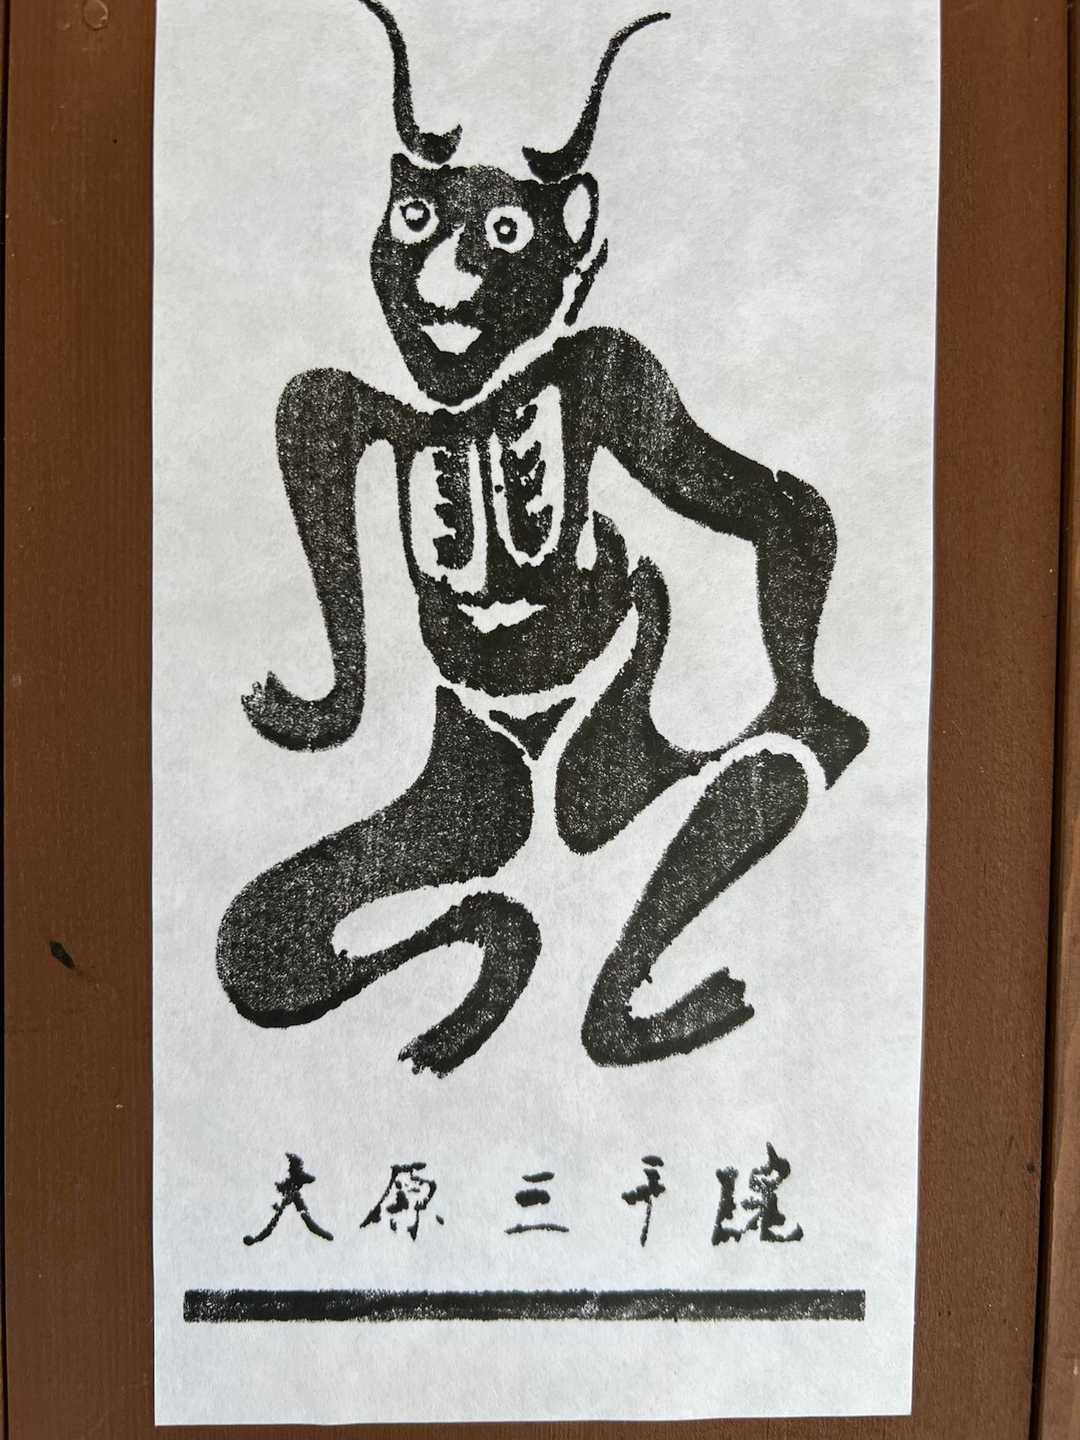 大原三千院